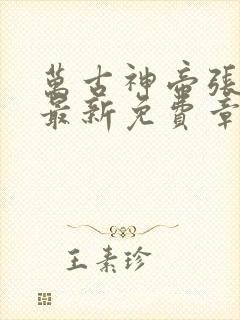 萬古神帝張
最新免費章
王素珍